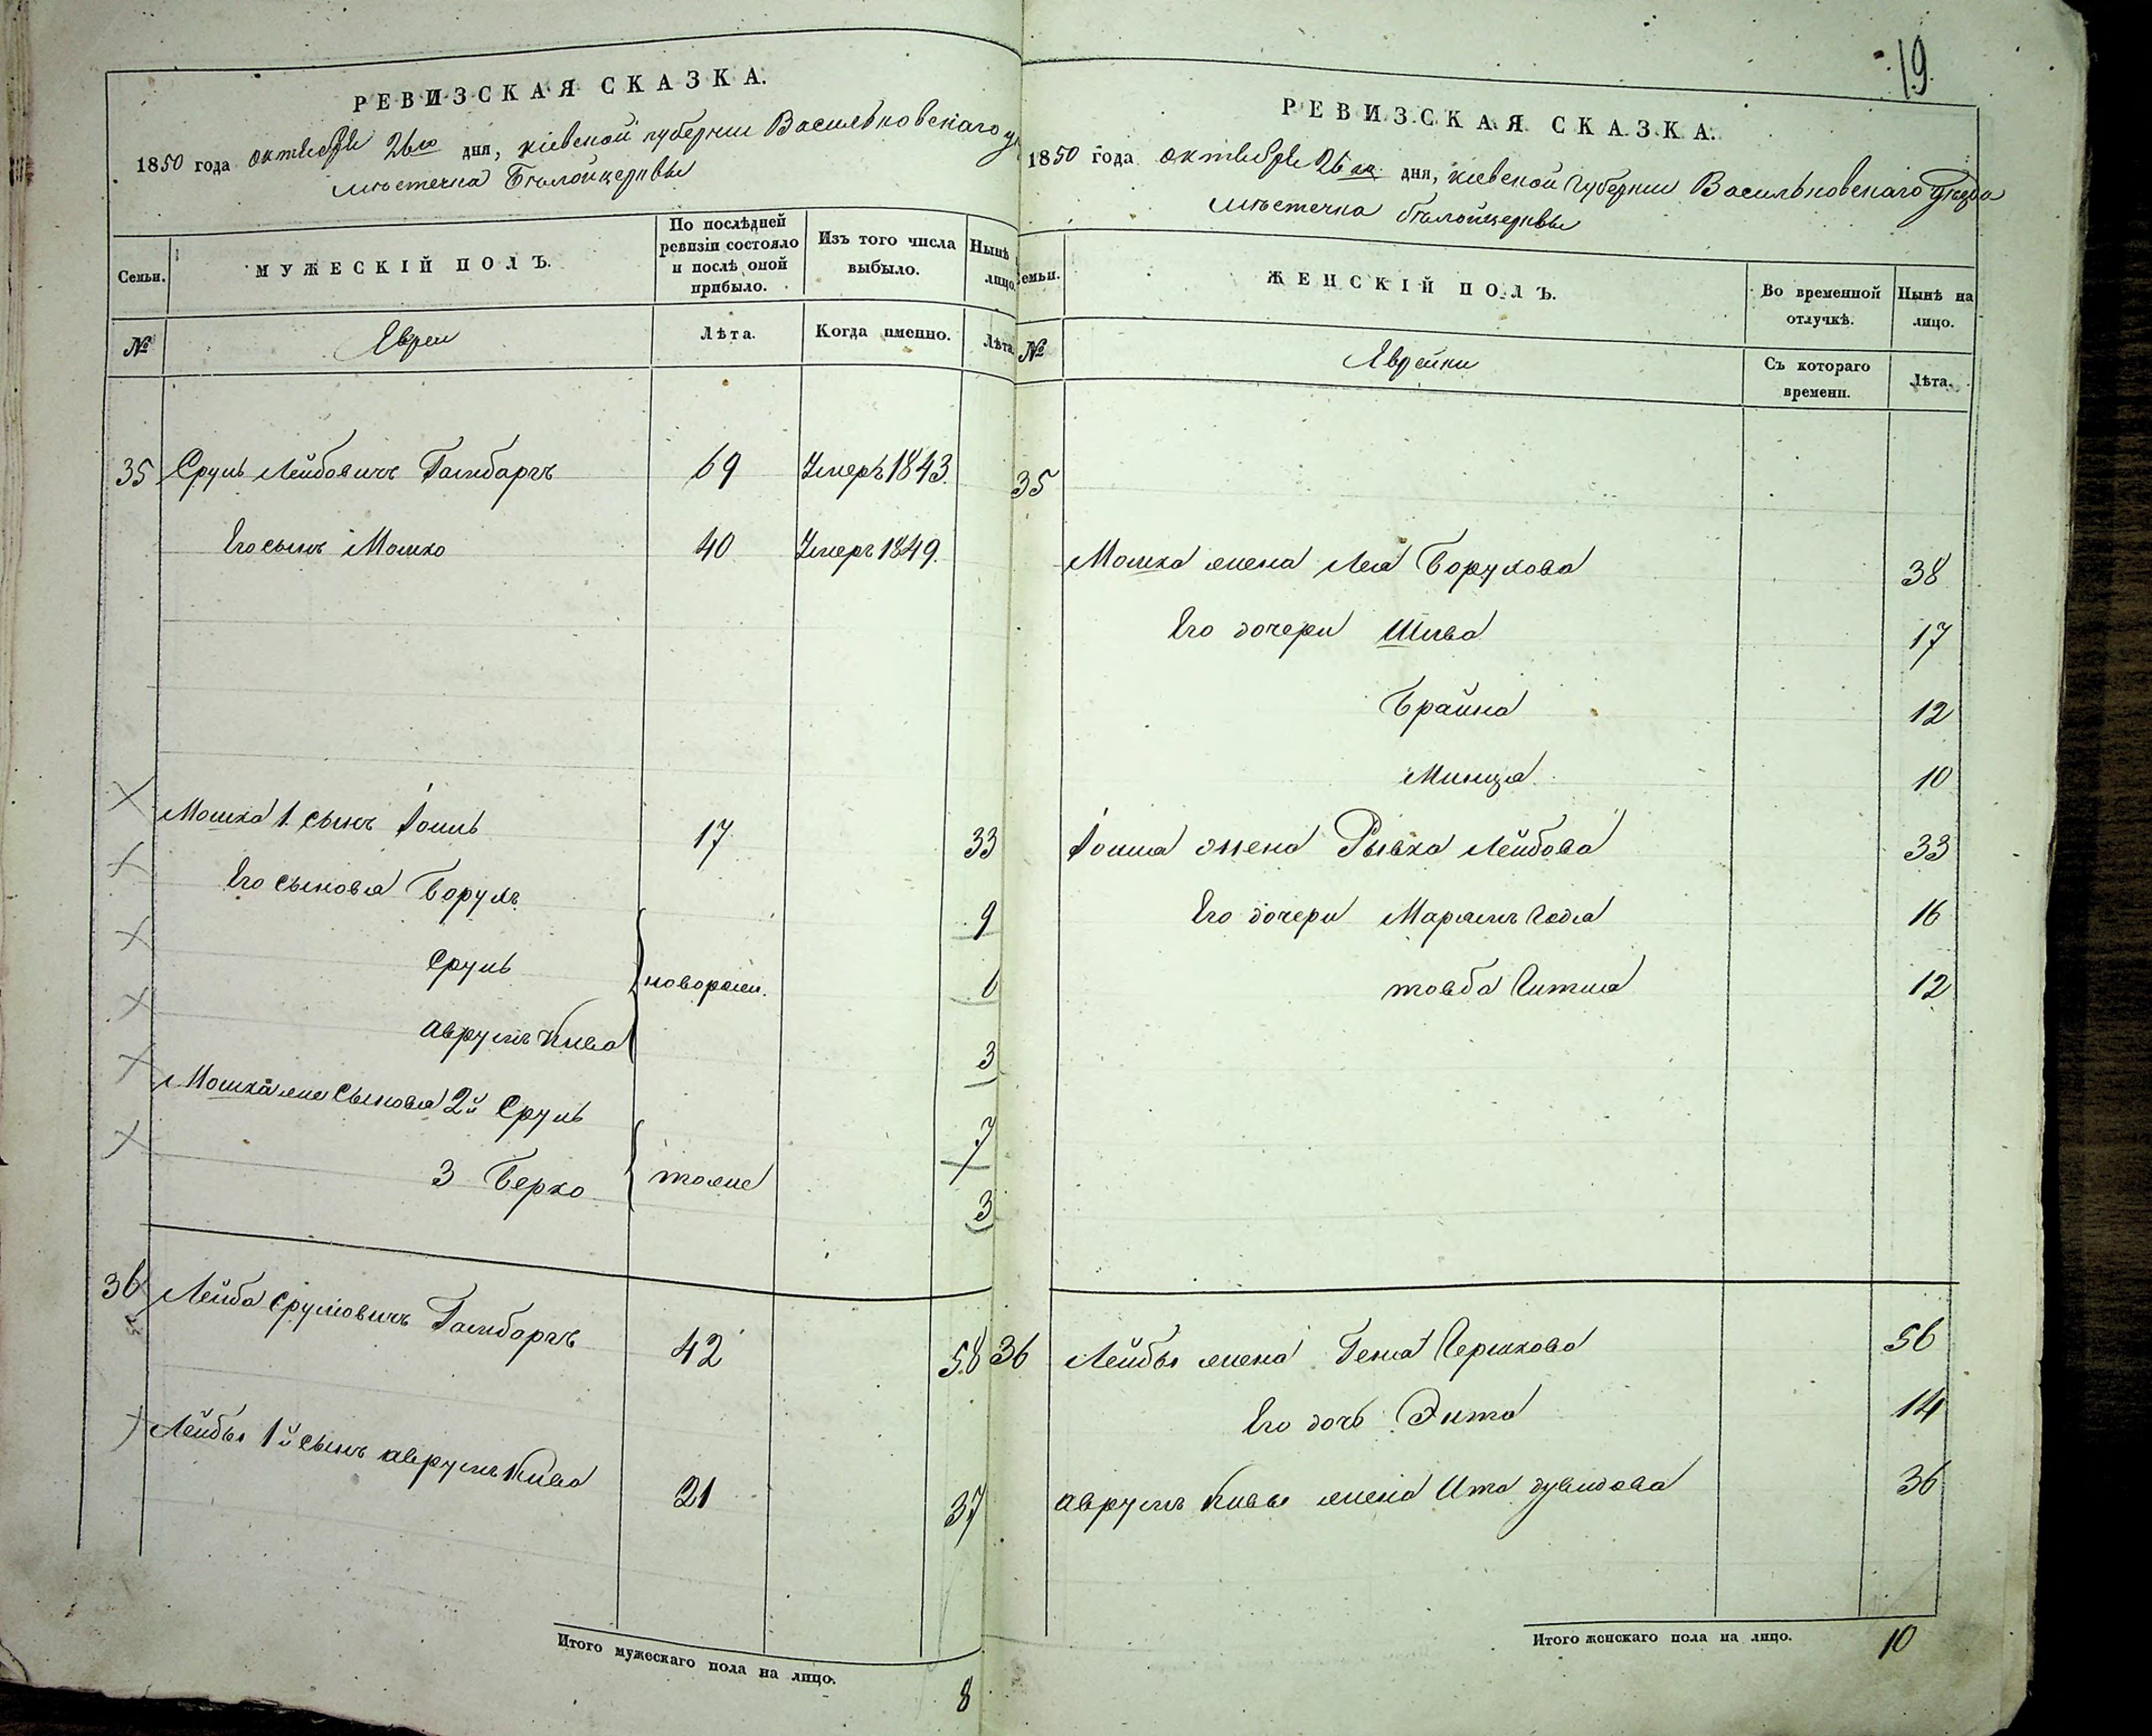 РЕВИЗСКАЯ СКАЗКА.
1850 года октября 26го дня, кіевской губерніи Васильковскаго
мѣстечка Бѣлойцеркви
Семьи.
МУЖЕСКІЙ ПОЛЪ.
По послѣдней ревизіи состояло и послѣ оной прибыло.
Изъ того числа выбыло.
Нынѣ лицо.
№
Евреи
Лѣта.
Когда именно.
Лѣта.
35 Сруль Лейбовичъ Гамбаргъ 69 Умеръ 1843.
Его сынъ Мошко 40 Умеръ 1849.
Мошка 1. сынъ Іошь 17 33
Его сыновья Борухъ 9
Сруль новорожд. 6
Аврумъ Кива 3
Мошка же сыновья 2й Сруль 7
3 Берко тоже 3
36 Лейба Срулiовичъ Гамбаргъ 42 58
Лейбы 1й сынъ аврумъ Кива 21 37
Итого мужескаго пола на лицо. 8
19.
РЕВИЗСКАЯ СКАЗКА.
1850 года октября 26го дня, кіевской Губерніи Васильковскаго уѣзда
мѣстечка бѣлойцеркви
Семьи.
ЖЕНСКІЙ ПОЛЪ.
Во временной отлучкѣ.
Нынѣ на лицо.
№
Еврейки
Съ котораго времени.
Лѣта.
35
Мошка жена Лея Борухова 38
Его дочери Шива 17
Брайна 12
Минця 10
Іошя жена Рывка Лейбова 33
Его дочери Марьямъ Годя 16
товба Читля 12
36 Лейбы жена Геня Гершкова 56
Его дочь Энта 14
аврумъ Кивы жена Ита дувидова 36
Итого женскаго пола на лицо. 10